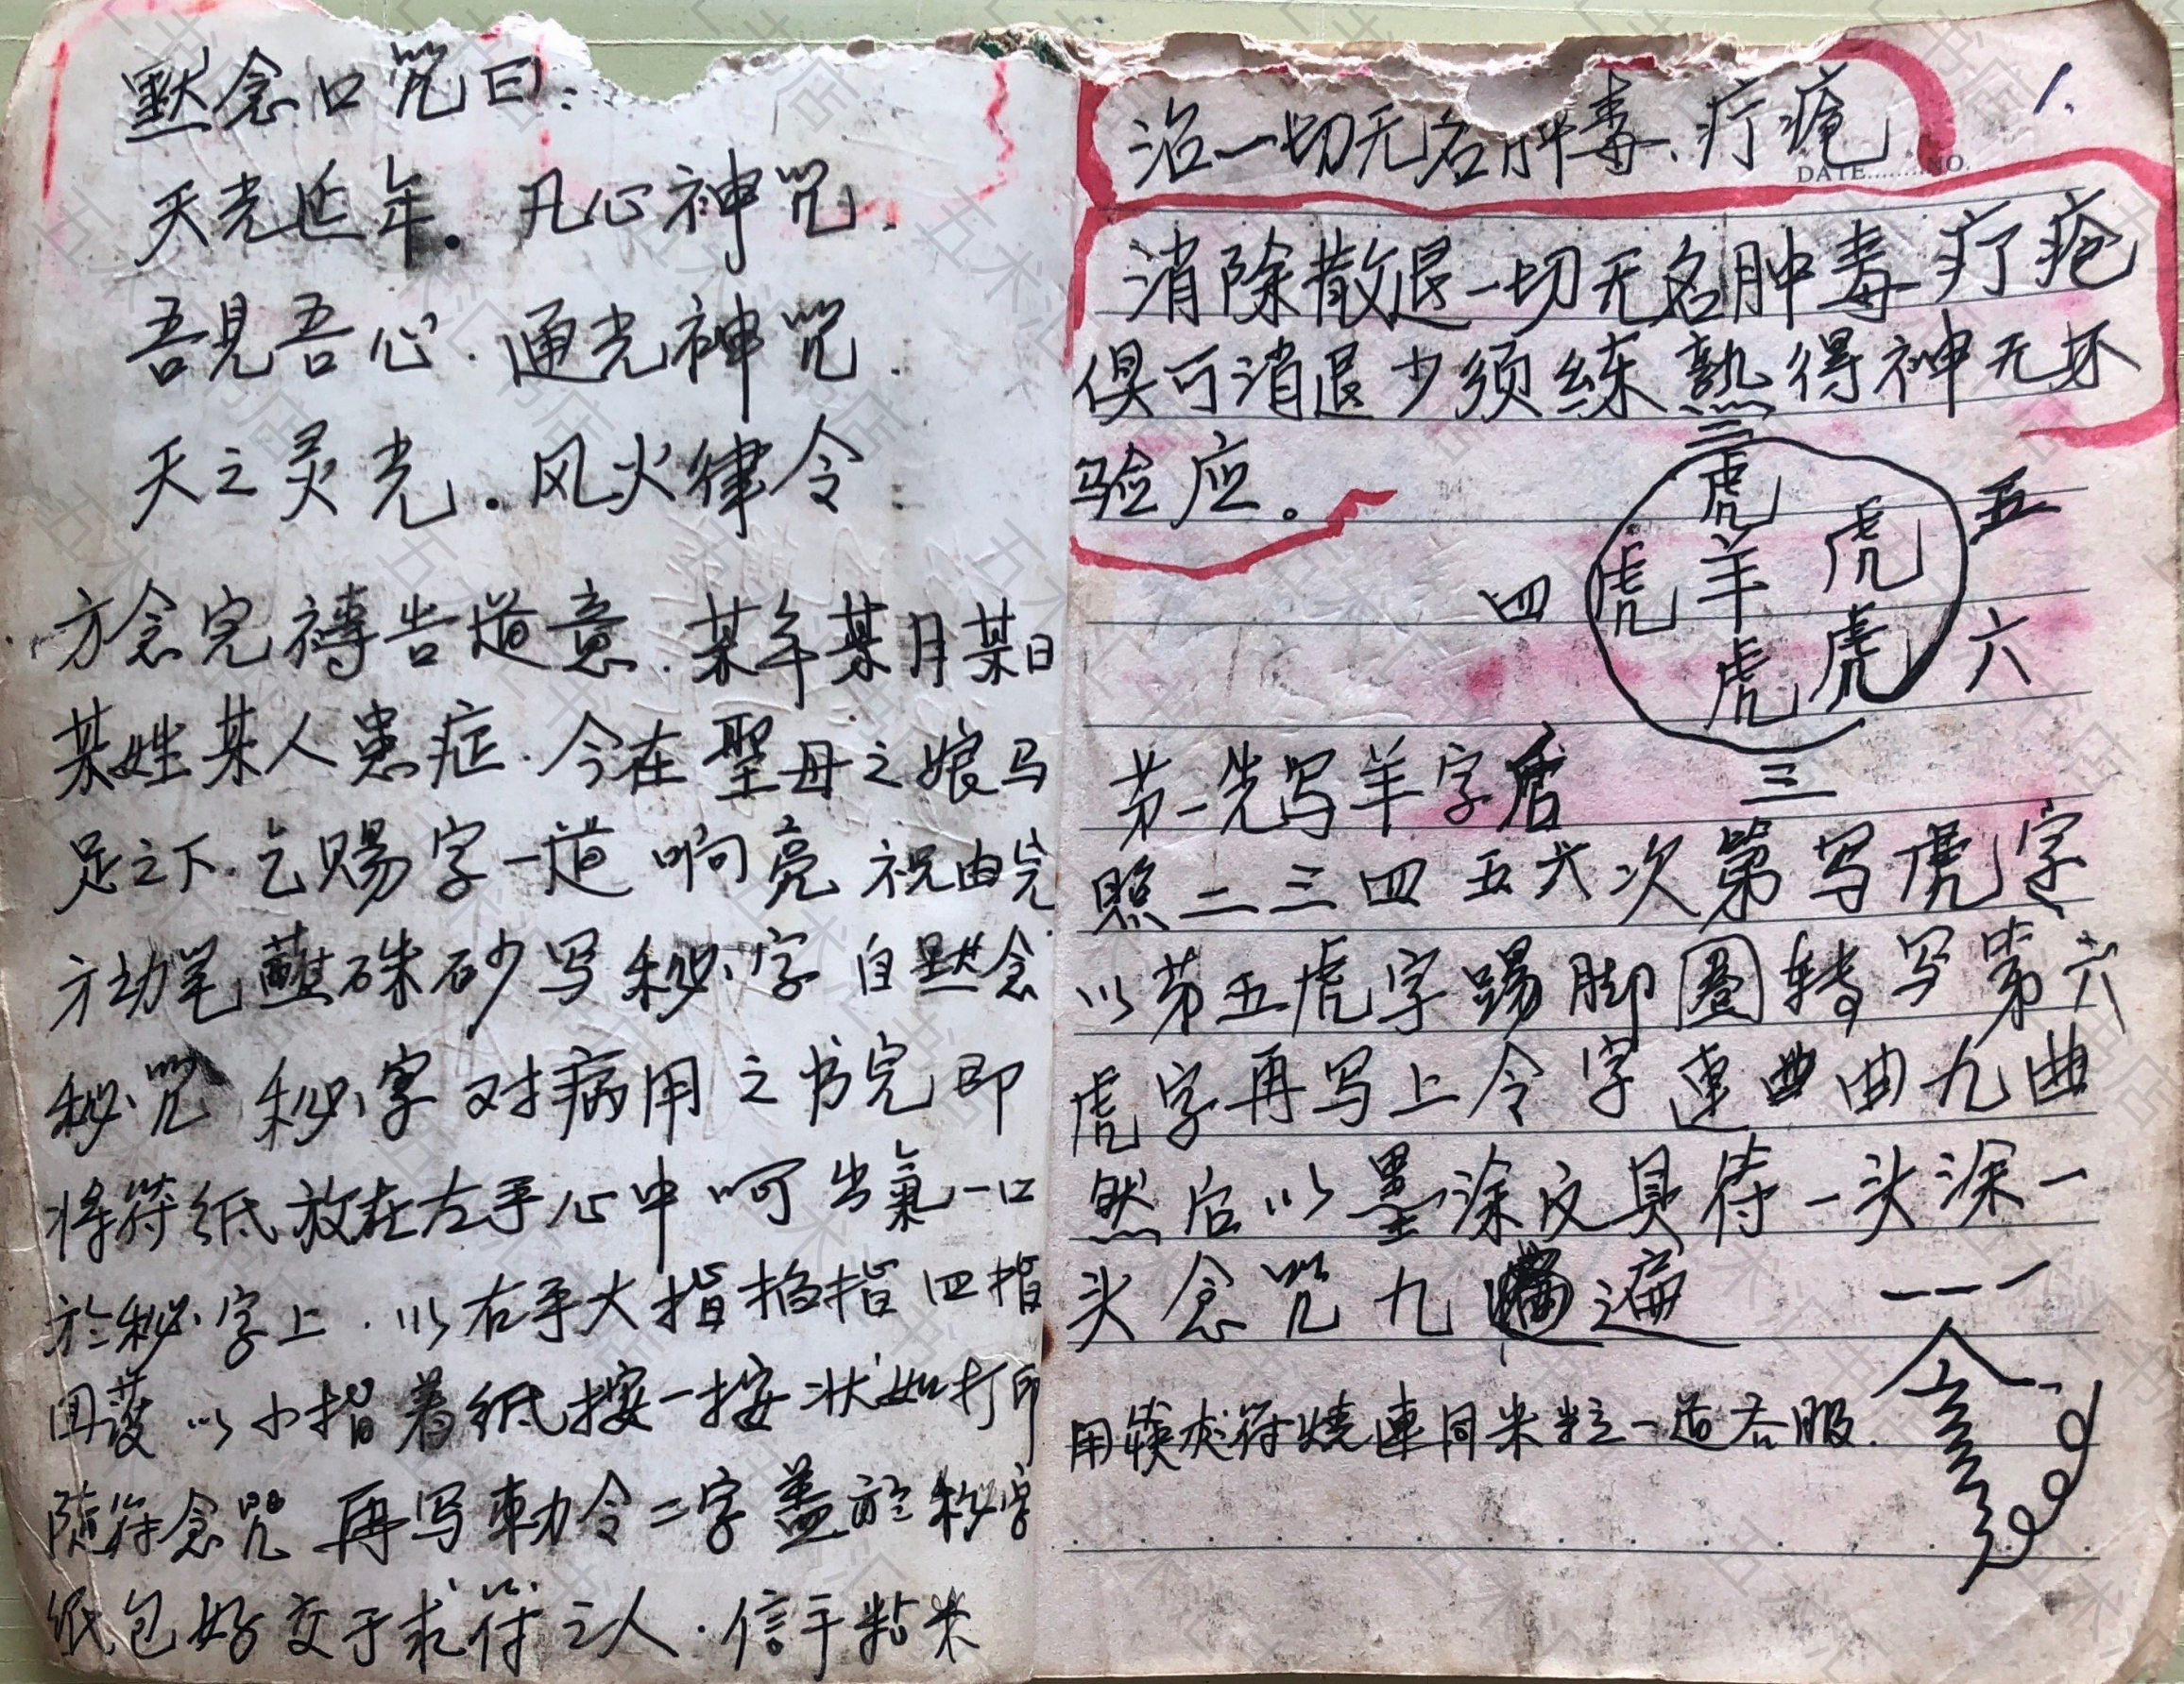 默念口咒曰：
天光近年。凡心神咒.
吾見吾心.通光神咒.
天之灵光.风火律令
方念完禱告道意.某年某月某日
某姓某人患症.今在聖母之娘马
足之下.乞赐字一道响亮祝由完
方动笔蘸硃砂写秘字自默念
秘咒秘字对病用之书完即
将符纸放在左手心中呵出氣一口
於秘字上.以右手大指掐指四指
回護以小指着纸按一按状如打印
随符念咒再写勅令二字盖於秘字
纸包好交于求符之人.信手粘米
1.
治一切无名肿毒.疔疮
DATE........NO.
消除散退一切无名肿毒疔疮
俱可消退少须练熟得神无不
验应。
二
虎
虎 羊 虎
虎 虎
四
五
六
三
第一先写羊字后
照二三四五六次第写虎字
以第五虎字踢脚圈转写第六
虎字再写上令字连曲曲九曲
然后以墨涂文具符一头涂一
头念咒九遍
用符烧連同米粒一道吞服.
五术汇书店